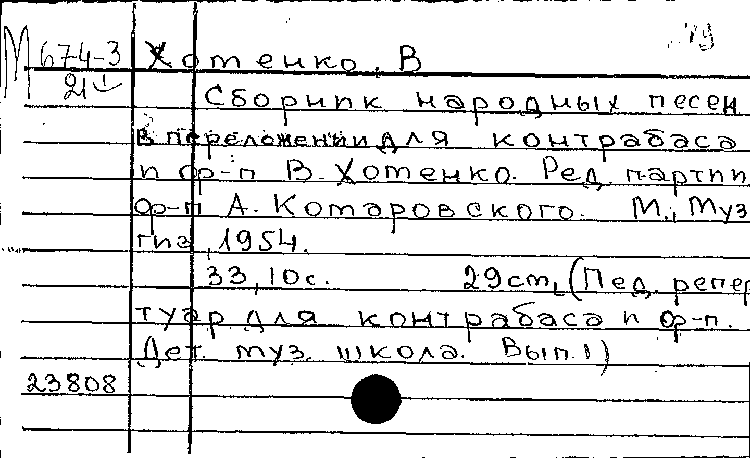 М 674-3 Хотенко, В
21
Сборник народных песен
в переложении для контрабаса
и ф-п В. Хотенко. Ред. партии
ф-п А. Комаровского. М., Муз
гиз, 1954.
33, 10с. 29cm, (Пед. репер
туар для контрабаса и ф-п.
Дет. муз. школа. Вып. 1)
23808